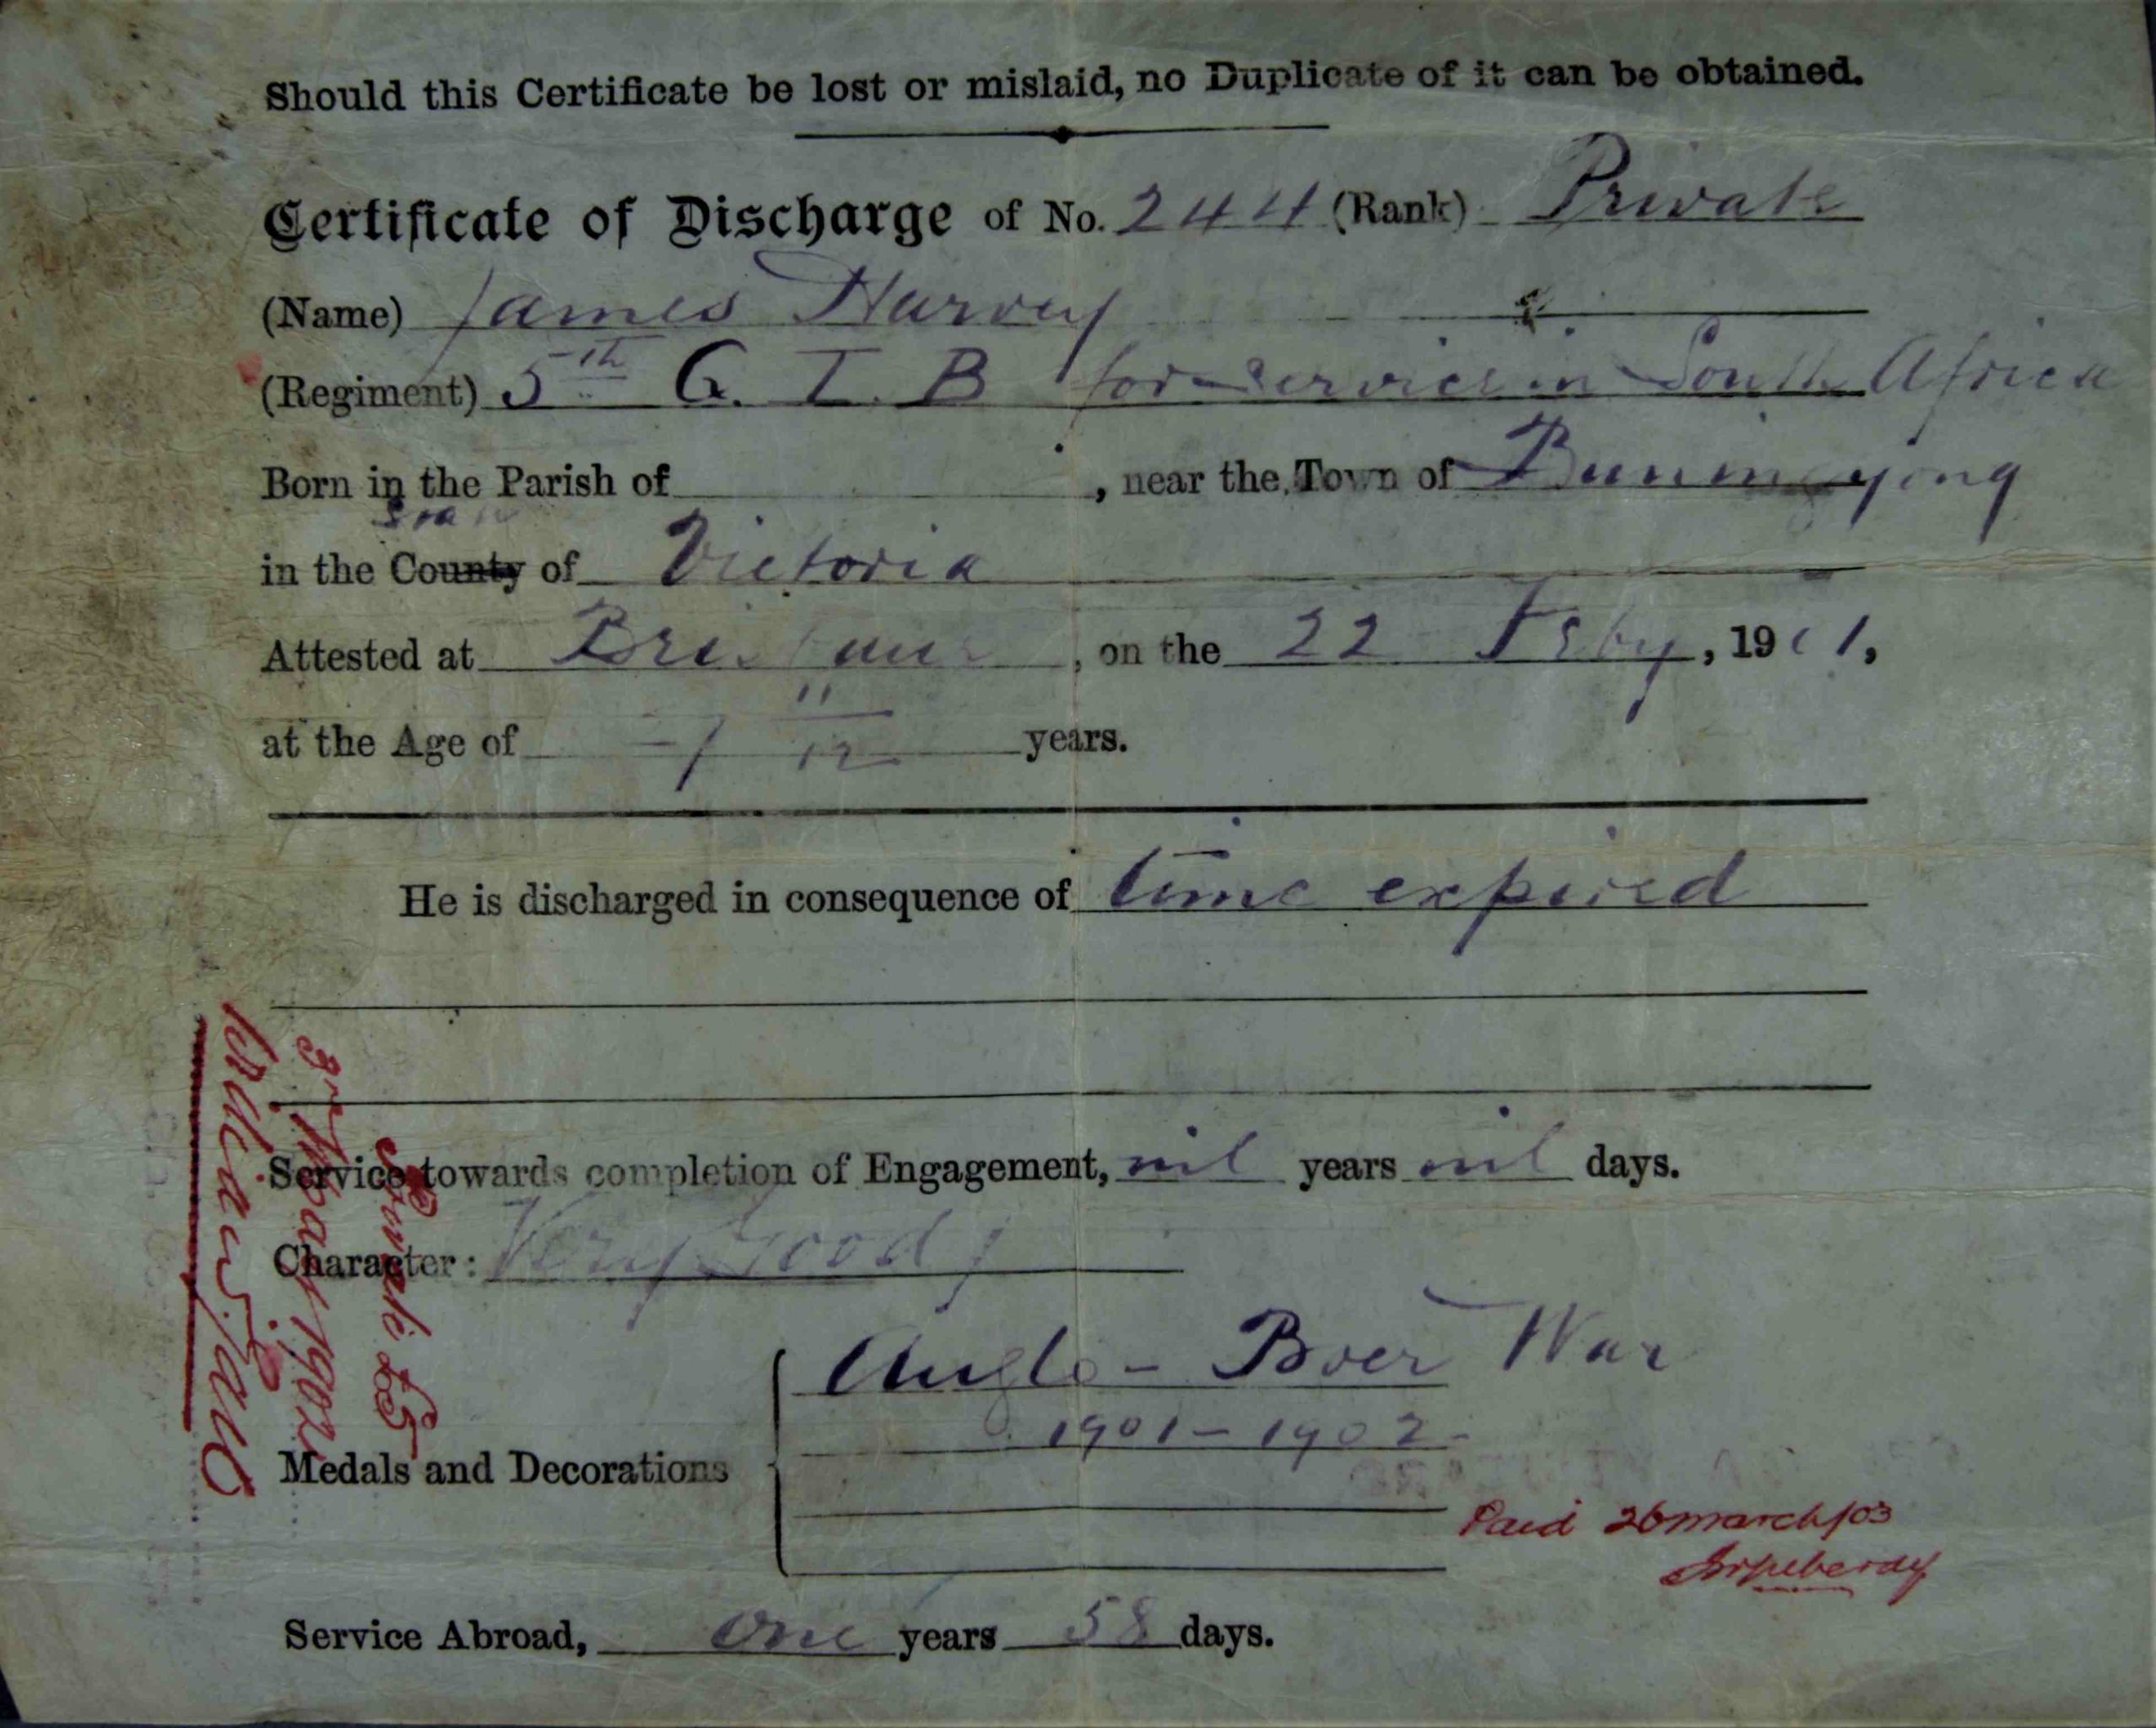 Should this Certificate be lost or mislaid, no Duplicate of it can be obtained.
Certificate of Discharge of No. 244 (Rank) Private
(Name) James Harvey
(Regiment) 5th Q. I. B for service in South Africa
Born in the Parish of , near the Town of Buninyong
in the County of Victoria
Attested at Brisbane, on the 22 Feby, 1901,
at the Age of 11/12 years.
He is discharged in consequence of time expired
Service towards completion of Engagement, nil years nil days.
Character: Very Good
Anglo-Boer War
1901-1902
Medals and Decorations
Paid 26 march/03
Service Abroad, One years 58 days.
£5
Mar 1902